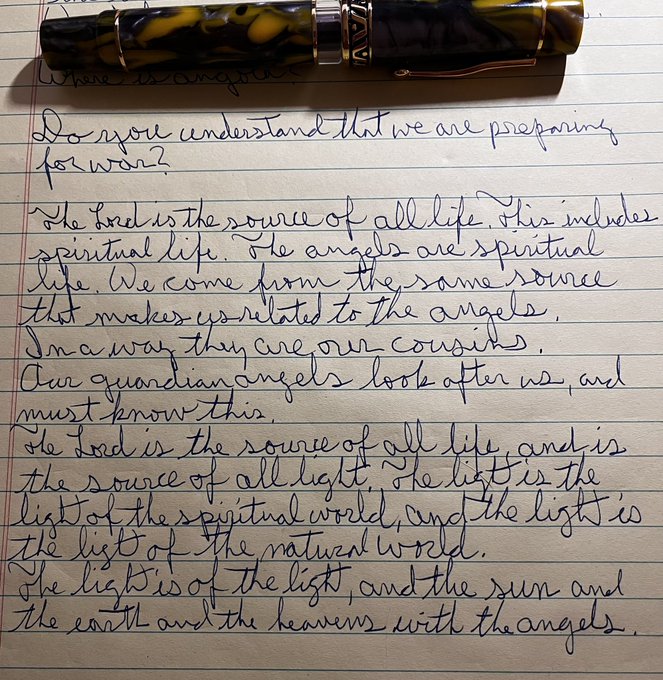 Where is angola?
Do you understand that we are preparing
for war?
The Lord is the source of all life. This includes
spiritual life. The angels are spiritual
life. We come from the same source
that makes us related to the angels.
In a way they are our cousins.
Our guardian angels look after us, and
must know this.
The Lord is the source of all life, and is
the source of all light. The light is the
light of the spiritual world, and the light is
the light of the natural world.
The light is of the light, and the sun and
the earth and the heavens with the angels.